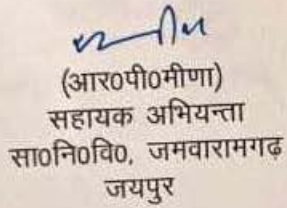 (आर०पी०मीणा)
सहायक अभियन्ता
सा०नि०वि०, जमवारामगढ़
जयपुर